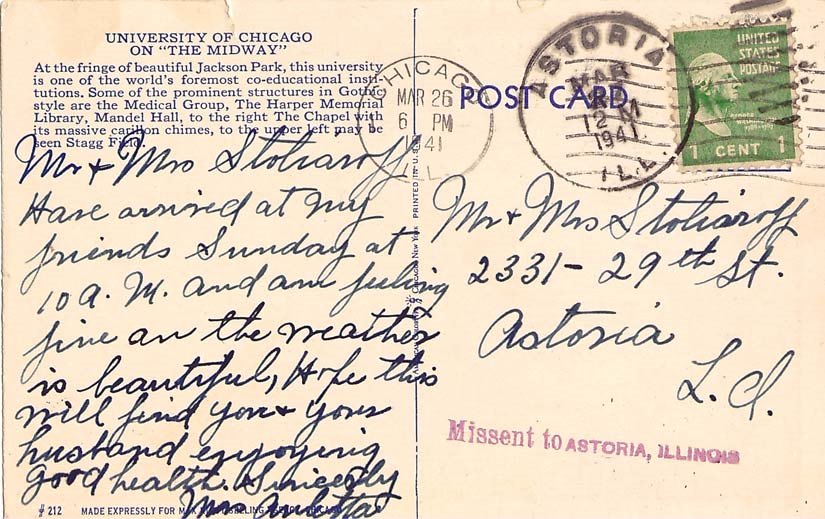 UNIVERSITY OF CHICAGO
ON "THE MIDWAY"
At the fringe of beautiful Jackson Park, this university
is one of the world's foremost co-educational insti-
tutions. Some of the prominent structures in Gothic
style are the Medical Group, The Harper Memorial
Library, Mandel Hall, to the right The Chapel with
its massive carillon chimes, to the upper left may be
seen Stagg Field.
Mr & Mrs Stoliaroff
Have arrived at my
friends Sunday at
10 A. M. and am feeling
fine an the weather
is beautiful, Hope this
will find you & your
husband enjoying
good health. Sincerely
Mrs Auletta
212 MADE EXPRESSLY FOR
PRINTED IN U.S.A.
CHICAGO
MAR 26
6 PM
1941
ILL.
POST CARD
ASTORIA
MAR
12 M
1941
ILL.
UNITED
STATES
POSTAGE
1 CENT 1
Mr & Mrs Stoliaroff
2331 - 29th St.
Astoria
L. I.
Missent to ASTORIA, ILLINOIS